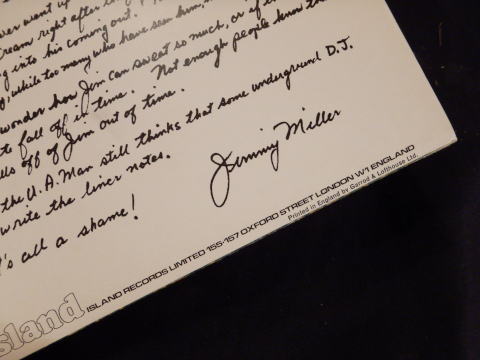 ver want up
Cream right after
ng into his coming out.
while too many who have seen him,
wonder how Jim can sweat so much, or if
to fall off in time. Not enough people know
lls off of Jim out of time.
the U.A. Man still thinks that some underground D.J.
write the liner notes.
t's call a shame!
Jimmy Miller
sland ISLAND RECORDS LIMITED 155-157 OXFORD STREET LONDON W1 ENGLAND
Printed in England by Garrod & Lofthouse Ltd.